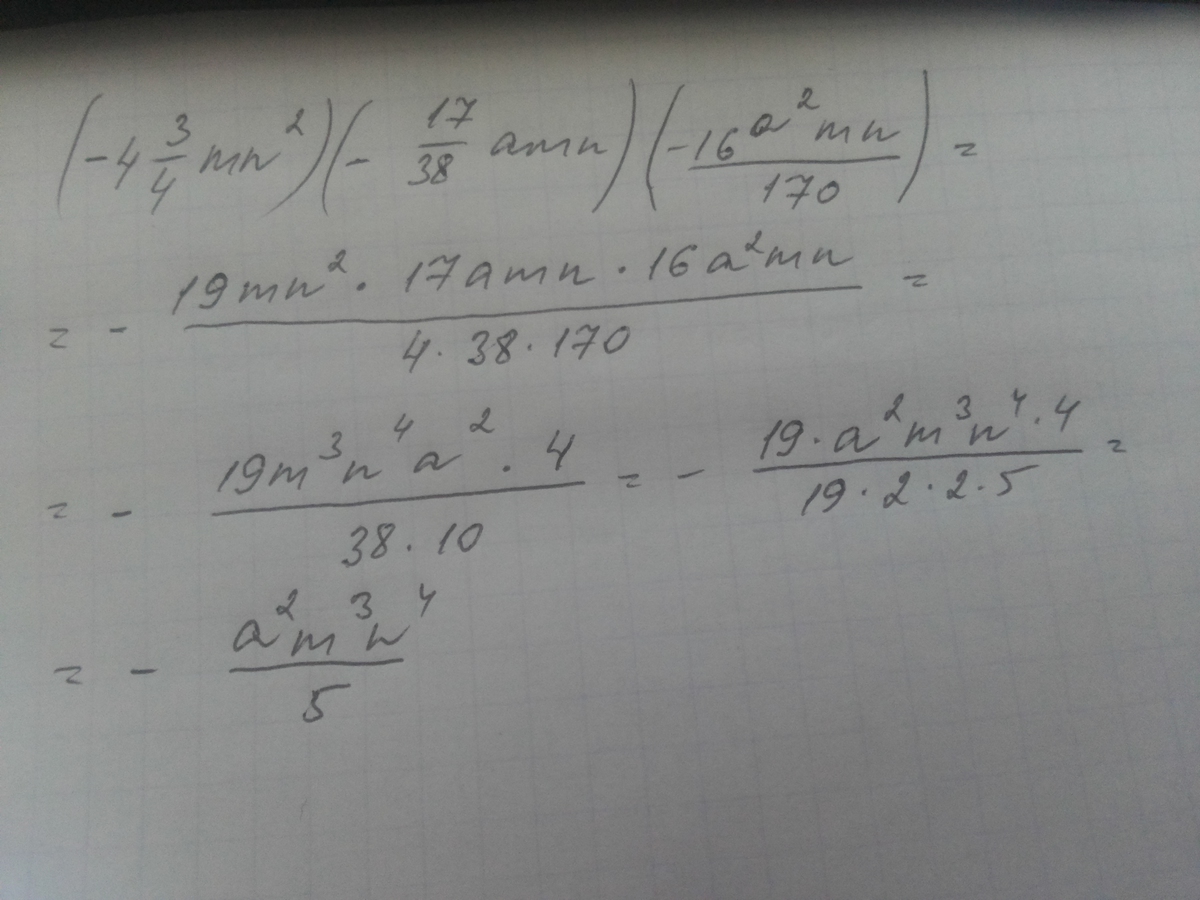 (-4 3/4 mn²)(- 17/38 amn)(-16a²mn/170) =
= - 19mn² · 17amn · 16a²mn / 4 · 38 · 170 =
= - 19m³n⁴a² · 4 / 38 · 10 = - 19 · a²m³n⁴ · 4 / 19 · 2 · 2 · 5 =
= - a²m³n⁴ / 5